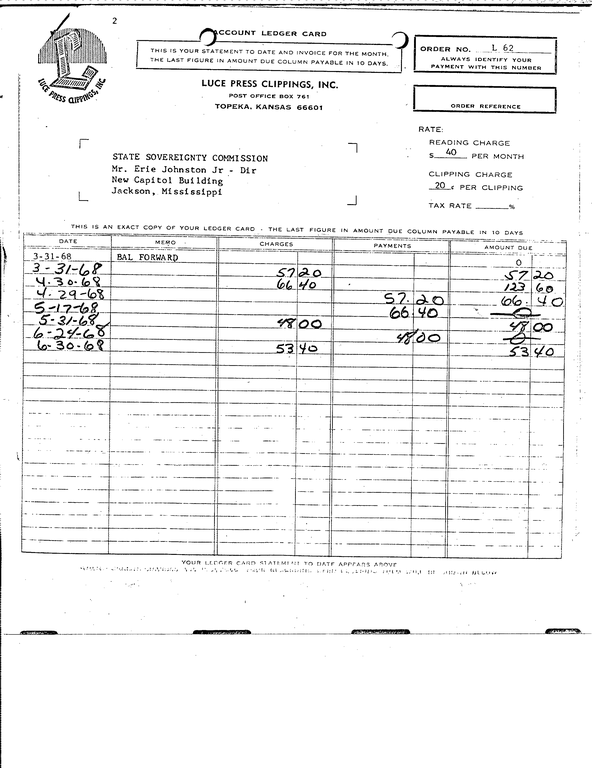 2
ACCOUNT LEDGER CARD
THIS IS YOUR STATEMENT TO DATE AND INVOICE FOR THE MONTH.
THE LAST FIGURE IN AMOUNT DUE COLUMN PAYABLE IN 10 DAYS.
ORDER NO. L 62
ALWAYS IDENTIFY YOUR
PAYMENT WITH THIS NUMBER
LUCE PRESS CLIPPINGS, INC.
LUCE PRESS CLIPPINGS, INC.
POST OFFICE BOX 761
TOPEKA, KANSAS 66601
ORDER REFERENCE
RATE:
READING CHARGE
$ 40 PER MONTH
CLIPPING CHARGE
20 ¢ PER CLIPPING
TAX RATE %
STATE SOVEREIGNTY COMMISSION
Mr. Erie Johnston Jr - Dir
New Capitol Building
Jackson, Mississippi
THIS IS AN EXACT COPY OF YOUR LEDGER CARD - THE LAST FIGURE IN AMOUNT DUE COLUMN PAYABLE IN 10 DAYS
DATE MEMO CHARGES PAYMENTS AMOUNT DUE
3-31-68 BAL FORWARD 0
3-31-68 57 20 57 20
4-30-68 66 40 123 60
4-29-68 57.20 66.40
5-17-68 66 40 0
5-31-68 48 00 48 00
6-24-68 48 00 0
6-30-68 53 40 53 40
YOUR LEDGER CARD STATEMENT TO DATE APPEARS ABOVE